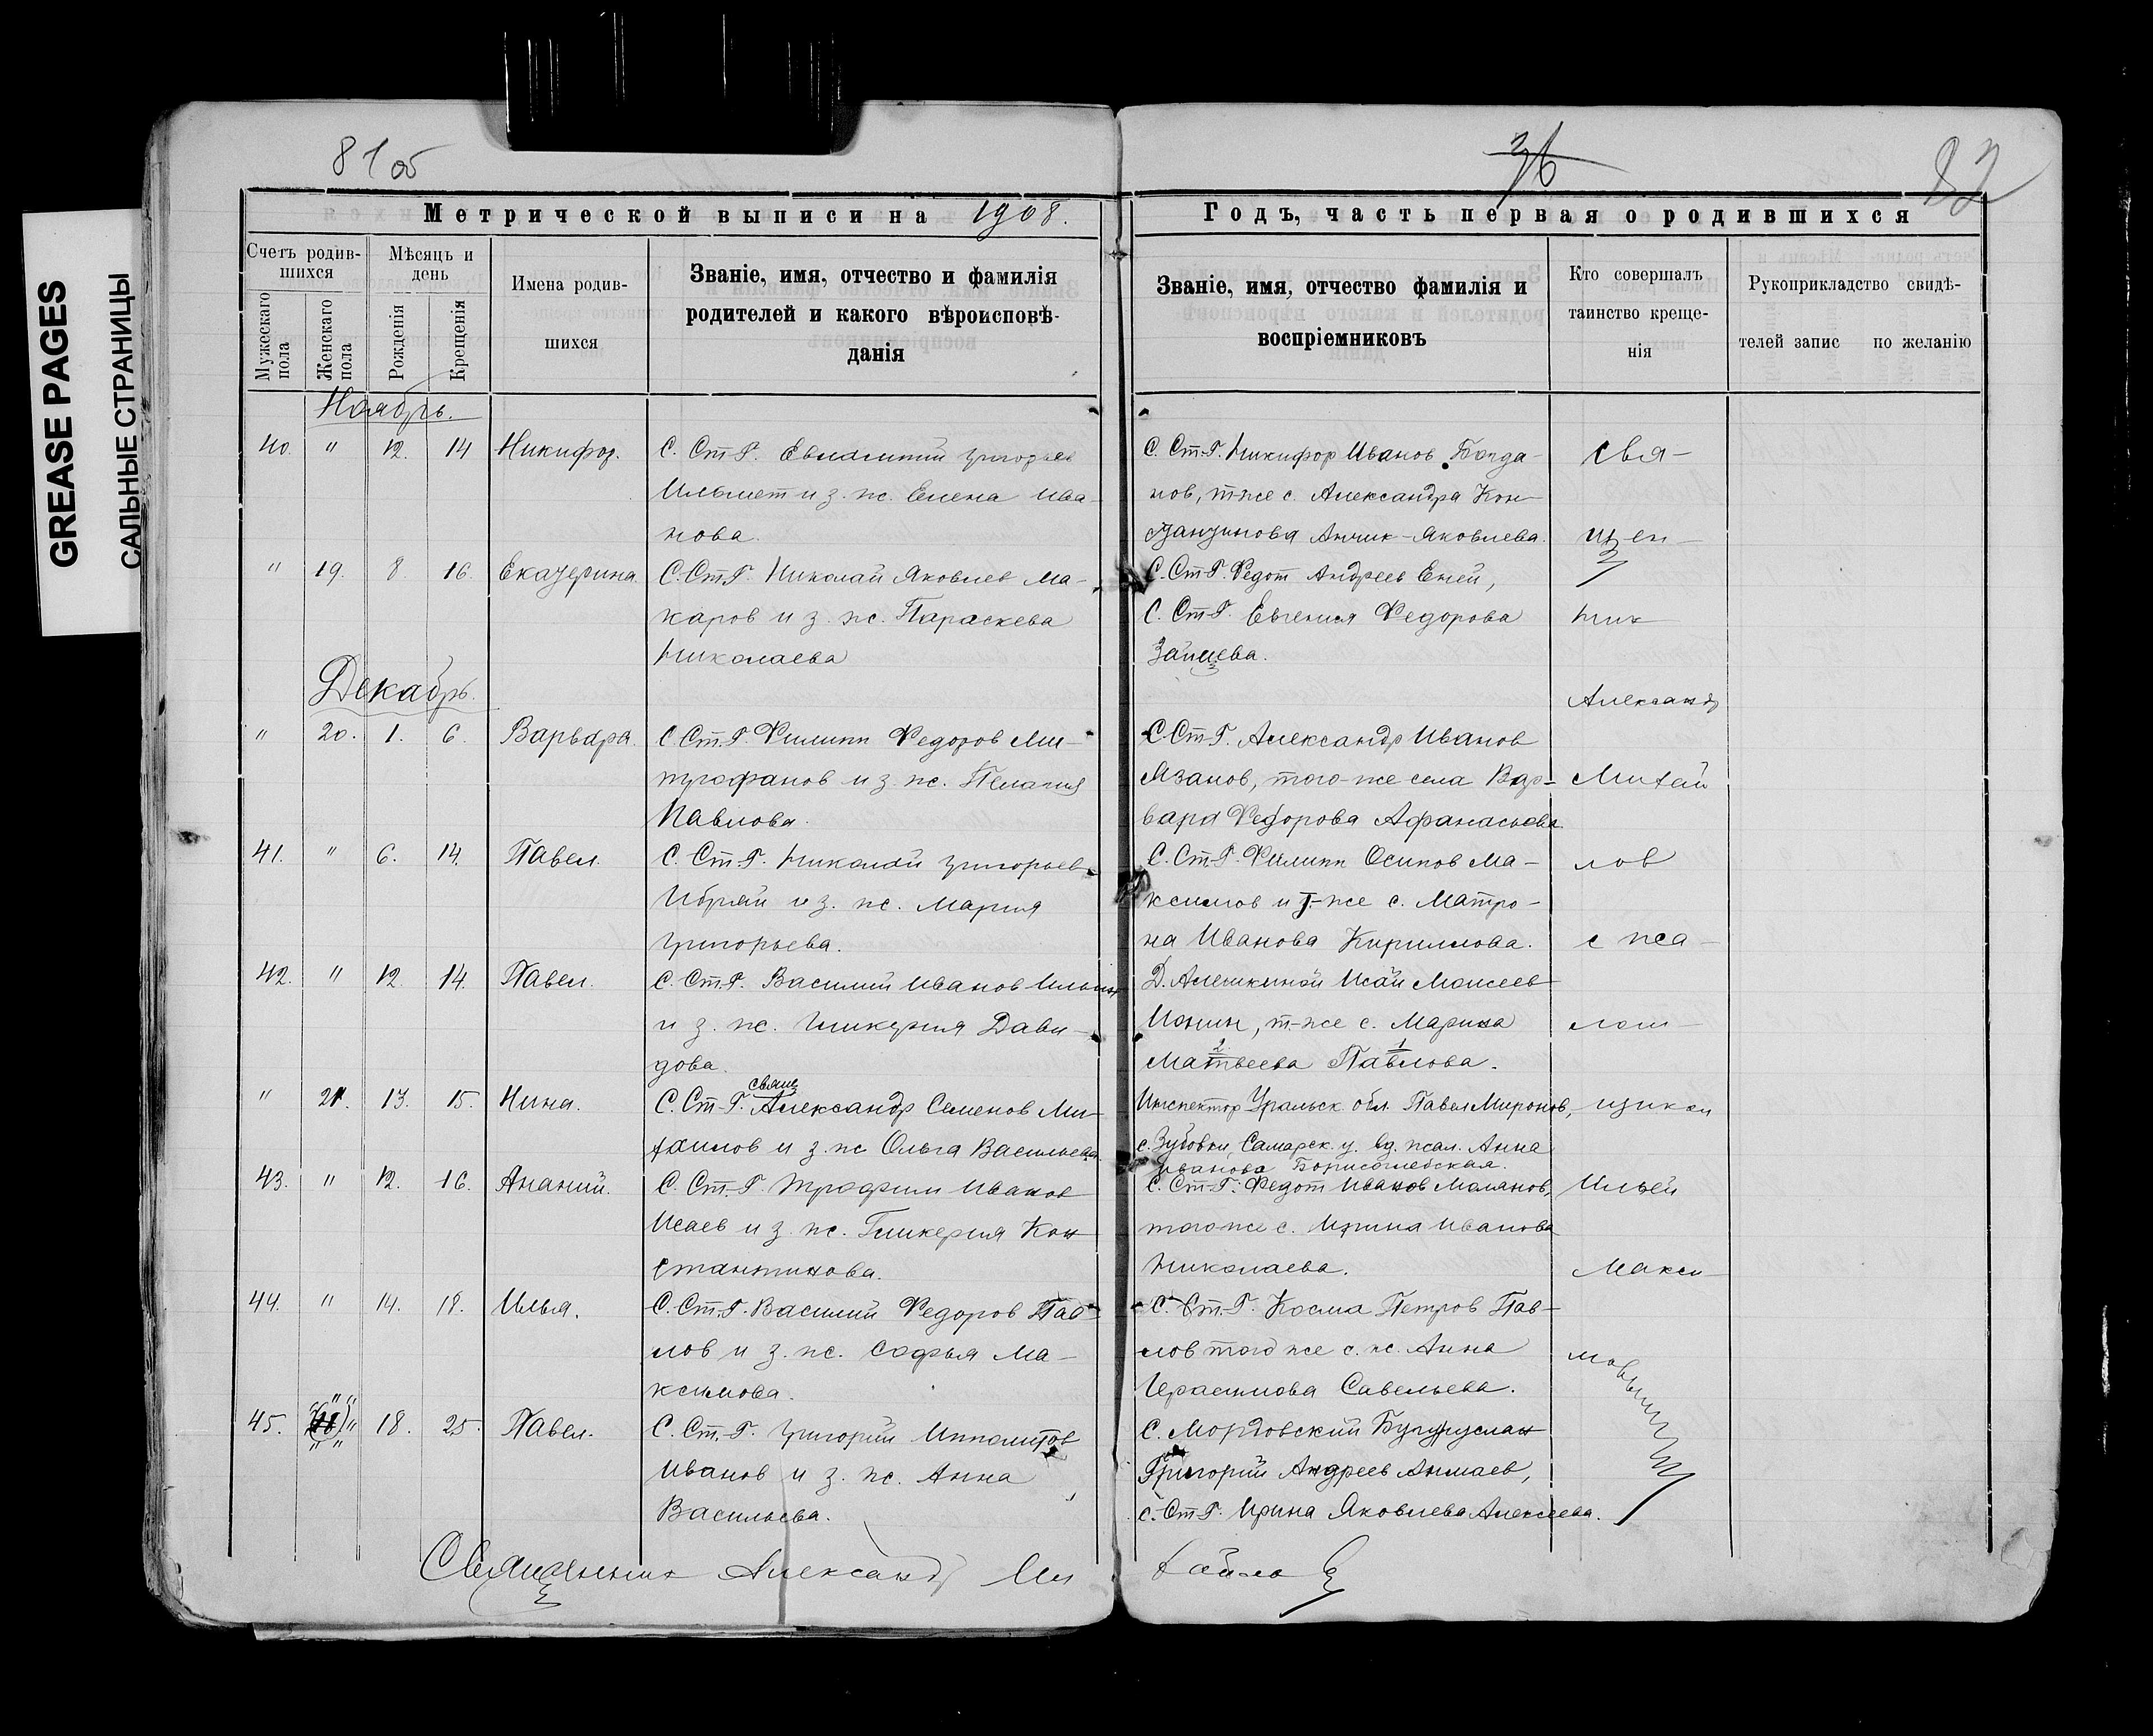 GREASE PAGES
САЛЬНЫЕ СТРАНИЦЫ
81об
36
82
Метрической выписи на 1908.
Годъ, часть первая о родившихся
Счетъ родив-
шихся
Мѣсяць и
день
Мужескаго
пола
Женскаго
пола
Рожденія
Крещенія
Имена родив-
шихся
Званіе, имя, отчество и фамилія
родителей и какого вѣроисповѣ-
данія
Званіе, имя, отчество фамилія и
воспріемниковъ
Кто совершалъ
таинство креще-
нія
Рукоприкладство свидѣ-
телей запис по желанію
Ноябрь.
40. " 12. 14 Никифор. С. Ст-Г. Григорьев
и з. ж. Елена Ива-
нова.
С. Ст-Г. Никифор Иванов Богда-
нов, т-же с. Александра Кон-
Яковлева.
" 19. 8. 16. Екатерина. С. Ст-Г. Николай Яковлев Ма-
каров и з. ж. Параскева
Николаева
С. Ст-Г. Федот Андреев Еней,
С. Ст-Г. Евгения Федорова
Зайцева.
Декабрь.
" 20. 1. 6. Варвара. С. Ст-Г. Филипп Федоров Ми-
трофанов и з. ж. Пелагия
Павлова.
С. Ст-Г. Александр Иванов
Мазанов, того-же села Вар-
вара Федорова Афанасьева.
41. " 6. 14. Павел. С. Ст-Г. Николай Григорьев
и з. ж. Мария
Григорьева.
С. Ст-Г. Филипп Осипов Ма-
ксимов и т-же с. Матро-
на Иванова Кириллова.
42. " 12. 14. Павел. С. Ст-Г. Василий Иванов Ильин
и з. ж. Гликерия Дави-
дова.
Д. Алешкиной Исай Моисеев
Ионин, т-же с. Марина
2 1
Матвеева Павлова.
" 21. 13. 15. Нина. С. Ст-Г. свящ. Александр Семенов Ми-
хаилов и з. ж. Ольга Васильева.
Инспектор Уральск. обл. Павел Миронов,
с. Зубовки, Самарск. у. вд. псал. Анна
Иванова Борисоглебская.
43. " 12. 16. Ананий. С. Ст-Г. Трофим Иванов
Исаев и з. ж. Гликерия Кон-
стантинова.
С. Ст-Г. Федот Иванов Моланов,
того-же с. Ирина Иванова
Николаева.
44. " 14. 18. Илья. С. Ст-Г. Василий Федоров Пав-
лов и з. ж. Софья Ма-
ксимова.
С. Ст-Г. Косма Петров Пав-
лов того же с. ж. Анна
Герасимова Савельева.
45. " 18. 25. Павел. С. Ст-Г. Григорий Ипполитов
Иванов и з. ж. Анна
Васильева.
С. Мордовский Бугуруслан
Григорий Андреев Анмаев,
с. Ст-Г. Ирина Яковлева Алексеева.
Свя-
щен-
ник
Александр
Михай
лов
с пса-
лом-
щиком
Ильей
Макси-
мовым
Священник Александр Ми
хайлов